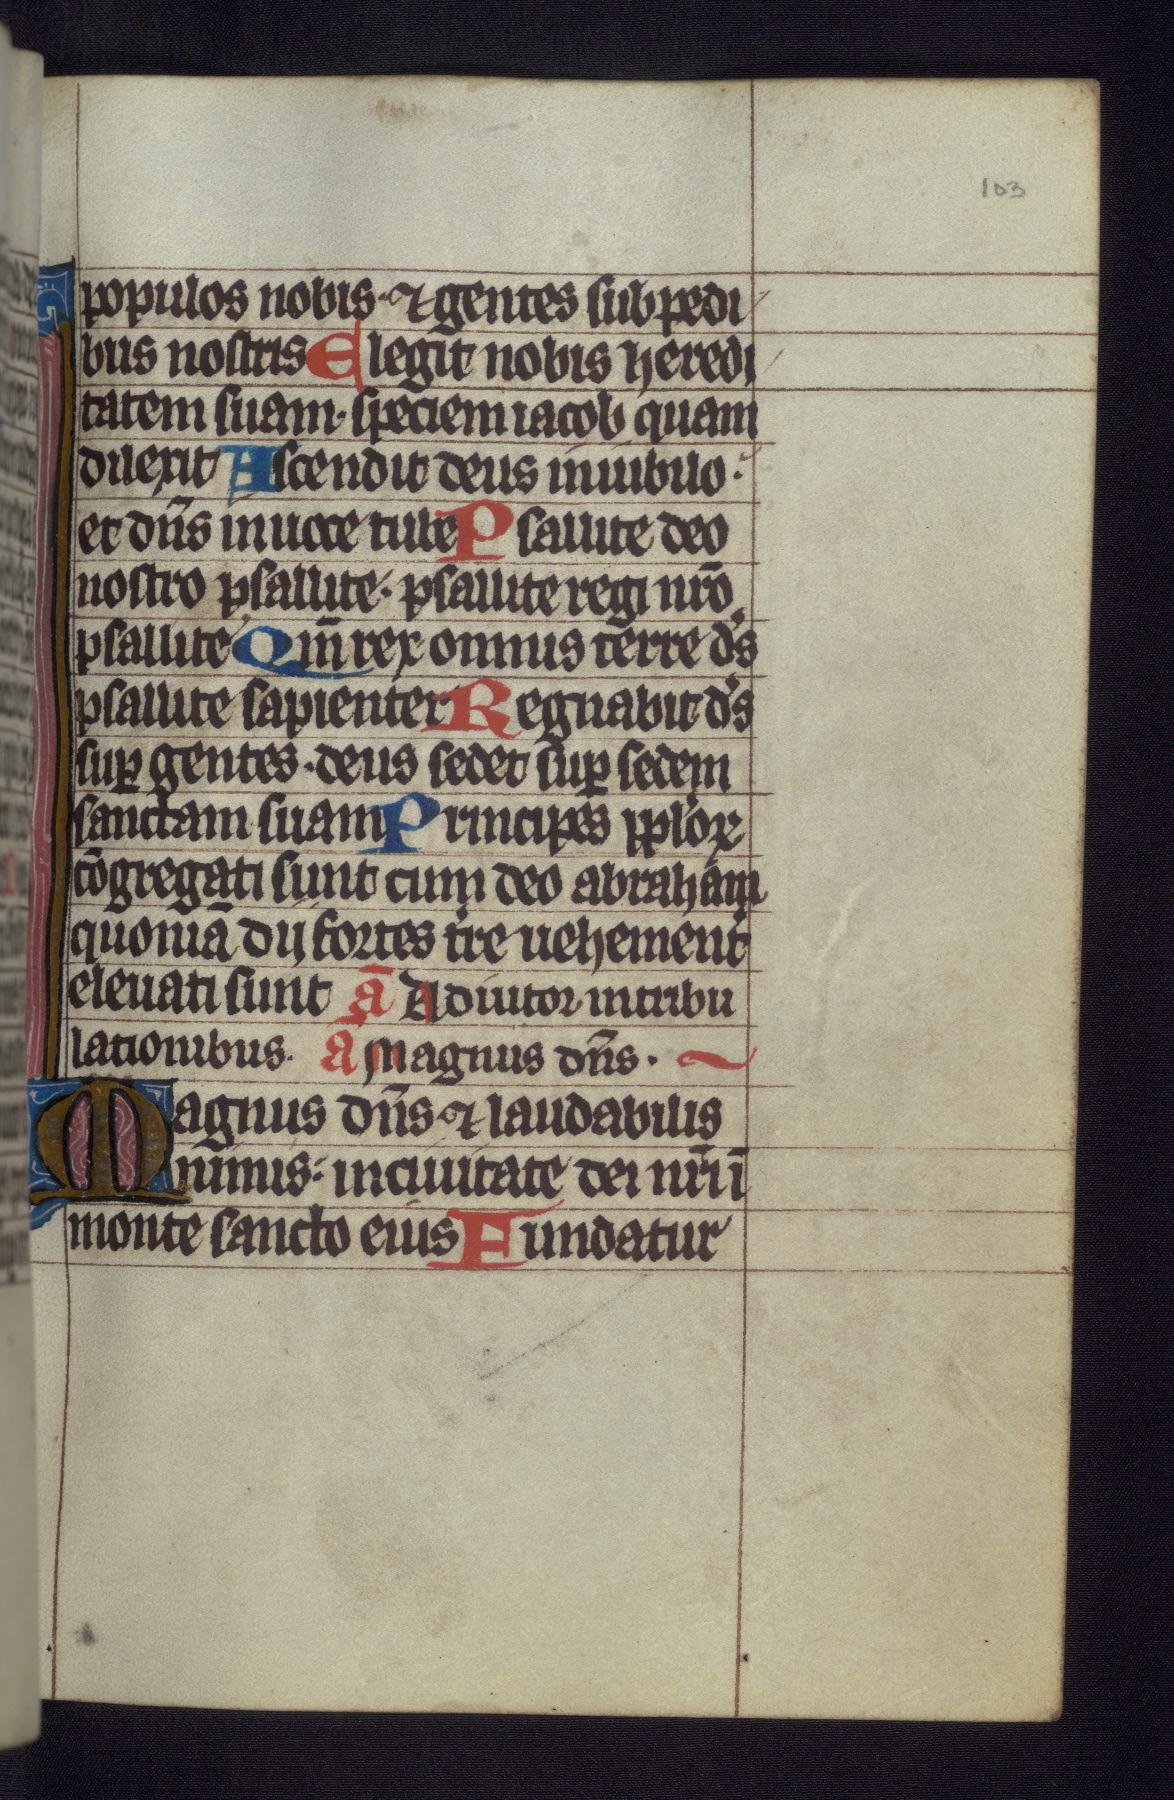 103
populos nobis · ⁊ gentes sub pedi
bus nostris Elegit nobis heredi
tatem suam · speciem iacob quam
dilexit Ascendit deus in iubilo ·
et dn̄s in uoce tube Psallite deo
nostro psallite · psallite regi nr̄o
psallite Qm̄ rex omnis terre ds̄
psallite sapienter Regnabit ds̄
suꝑ gentes · deus sedet suꝑ sedem
sanctam suam Principes pp̄loꝝ
cōgregati sunt cum deo abraham
quoniā dij fortes tr̄e uehement̄
eleuati sunt ā Adiutor in tribu
lationibus. a magnus dn̄s ·
Magnus dn̄s ⁊ laudabilis
nimis · in ciuitate dei nr̄i ī
monte sancto eius Fundatur